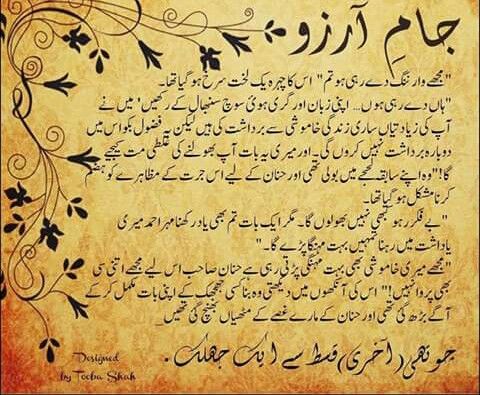 جامِ آرزو
"مجھے وارننگ دے رہی ہو تم" اس کا چہرہ یک لخت سرخ ہو گیا تھا۔
"ہاں دے رہی ہوں... اپنی زبان اور گری ہوئی سوچ سنبھال کے رکھیں' میں نے
آپ کی زیادتیاں ساری زندگی خاموشی سے برداشت کی ہیں لیکن یہ فضول بکواس میں
دوبارہ برداشت نہیں کروں گی۔ اور میری یہ بات آپ بھولنے کی غلطی مت کیجیے
گا!" وہ اپنے سابقہ لہجے میں بولی تھی اور حنان کے لیے اس جرت کے مظاہرے کو ہضم
کرنا مشکل ہو گیا تھا۔
"بے فکر رہو کبھی نہیں بھولوں گا۔ مگر ایک بات تم بھی یاد رکھنا مہر احمد میری
یاداشت میں رہنا تمہیں بہت مہنگا پڑے گا۔"
"مجھے میری خاموشی بھی بہت مہنگی پڑتی رہی ہے حنان صاحب اس لیے مجھے اتنی سی بھی
پروا نہیں!" اس کی آنکھوں میں دیکھتی وہ بنا کسی جھجھک کے اپنی بات مکمل کر کے
آگے بڑھ گئی تھی اور حنان کے مارے غصے کے مٹھیاں بھینچ گئی تھیں۔
چوتھی (آخری) قسط سے ایک جھلک.
Designed
by Tooba Shah